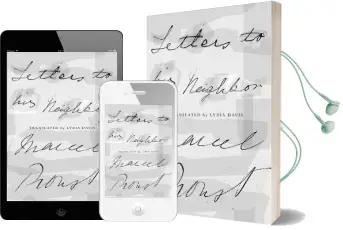 Letters to
his Neighbor
TRANSLATED by LYDIA DAVIS
Marcel
Proust
Letters to
his Neighbor
TRANSLATED by LYDIA DAVIS
Marcel
Proust
Letters to
his Neighbor
TRANSLATED by LYDIA DAVIS
Marcel
Proust